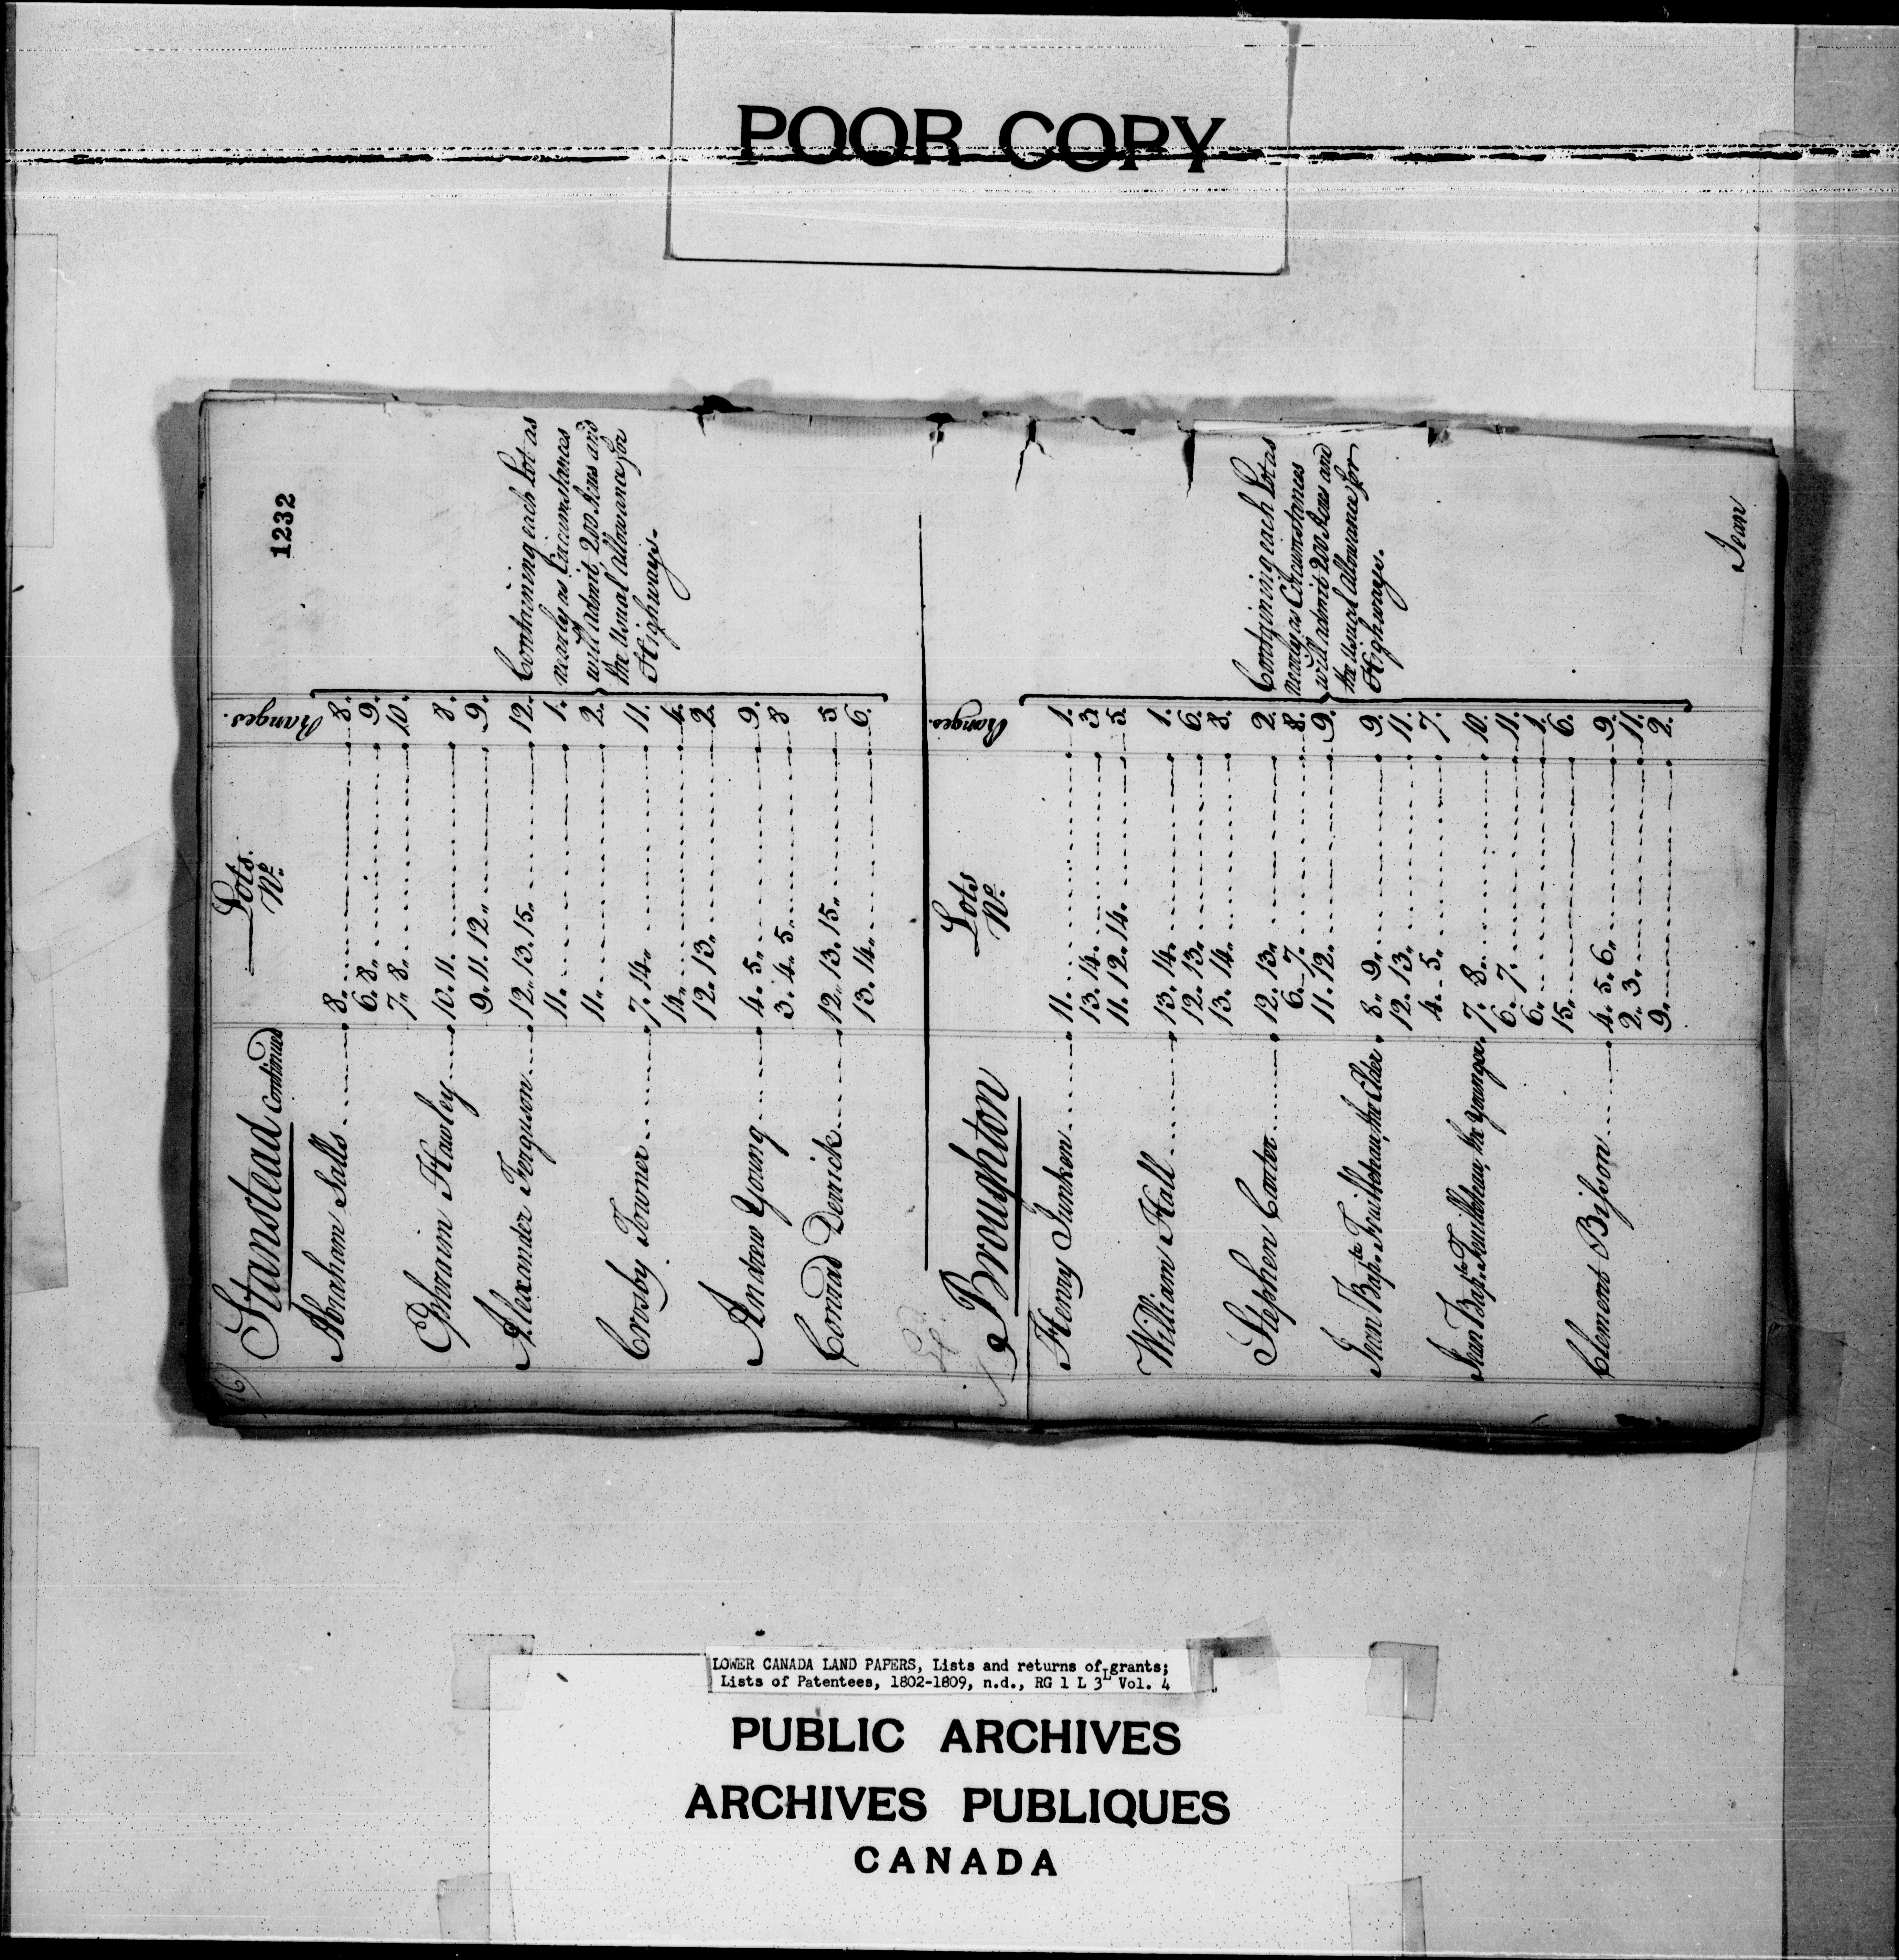 POOR COPY
1232
Stanstead Continued
Lots. Nº.
Ranges.
Abraham Salls 8. 8.
6. 8. 9.
7. 8. 10.
Ephraim Hawley 10. 11. 8.
9. 11. 12. 9.
Alexander Ferguson 12. 13. 15. 12.
11. 1.
11. 2.
Crosby Towner 7. 14. 11.
14. 4.
12. 13. 2.
Andrew Young 4. 5. 9.
3. 4. 5. 8
Conrad Derrick 12. 13. 15. 5.
13. 14. 6.
Containing each Lot as
nearly as Circumstances
will admit, 200 Acres and
the Usual allowance for
Highways.
Broughton
Lots Nº.
Ranges.
Henry Junken 11. 1.
13. 14. 3.
11. 12. 14. 5.
William Hall 13. 14. 1.
12. 13. 6.
13. 14. 8.
Stephen Carter 12. 13. 2.
6. 7. 8.
11. 12. 9.
Jean Bapte. the Elder 8. 9. 9.
12. 13. 11.
4. 5. 7.
Jean Bapte. the Younger 7. 8. 10.
6. 7. 11.
6. 1.
15. 6.
Clement Bisson 4. 5. 6. 9.
2. 3. 11.
9. 2.
Containing each Lot as
nearly as Circumstances
will admit 200 Acres and
the Usual allowance for
Highways.
Jean
LOWER CANADA LAND PAPERS, Lists and returns of grants;
Lists of Patentees, 1802-1809, n.d., RG 1 L 3L Vol. 4
PUBLIC ARCHIVES
ARCHIVES PUBLIQUES
CANADA